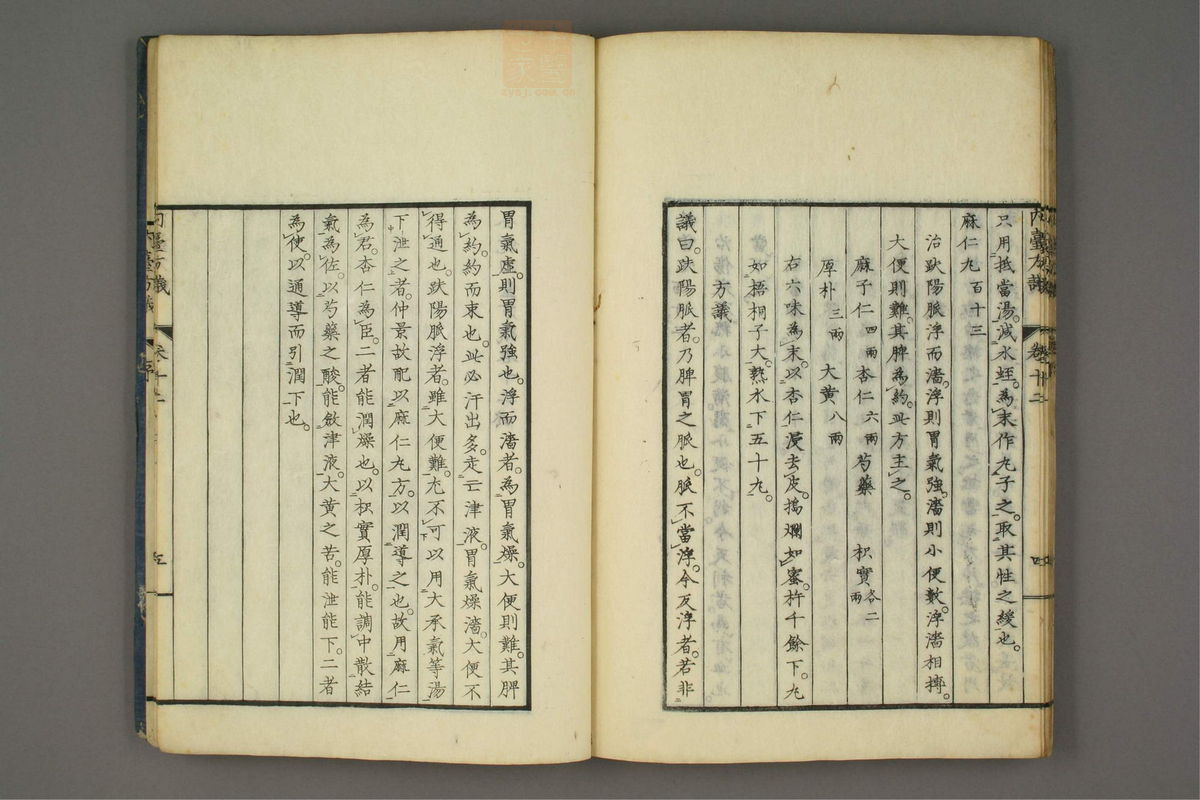 只用抵當湯。減水蛭。為末作丸子之。取其性之緩也。
麻仁丸百十三
治趺陽脈浮而濇。浮則胃氣強。濇則小便數。浮濇相摶。
大便則難。其脾為約。此方主之。
麻子仁四兩 杏仁六兩 芍藥 枳實各二兩
厚朴三兩 大黃八兩
右六味為末。以杏仁湯去皮。搗爛如蜜。杵千餘下。丸
如梧桐子大。熱水下五十丸。
方議
議曰。趺陽脈者。乃脾胃之脈也。脈不當浮。今反浮者。若非
內臺方議 卷十二 四
胃氣虛。則胃氣強也。浮而濇者。為胃氣燥。大便則難。其脾
為約。約而束也。此必汗出多。走亡津液。胃氣燥濇。大便不
得通也。趺陽脈浮者。雖大便難。尤不可以用大承氣等湯
下泄之者。仲景故配以麻仁丸方。以潤導之也。故用麻仁
為君。杏仁為臣。二者能潤燥也。以枳實厚朴。能調中散結
氣為佐。以芍藥之酸。能斂津液。大黃之苦。能泄能下。二者
為使。以通導而引潤下也。
內臺方議 五
zysj.com.cn